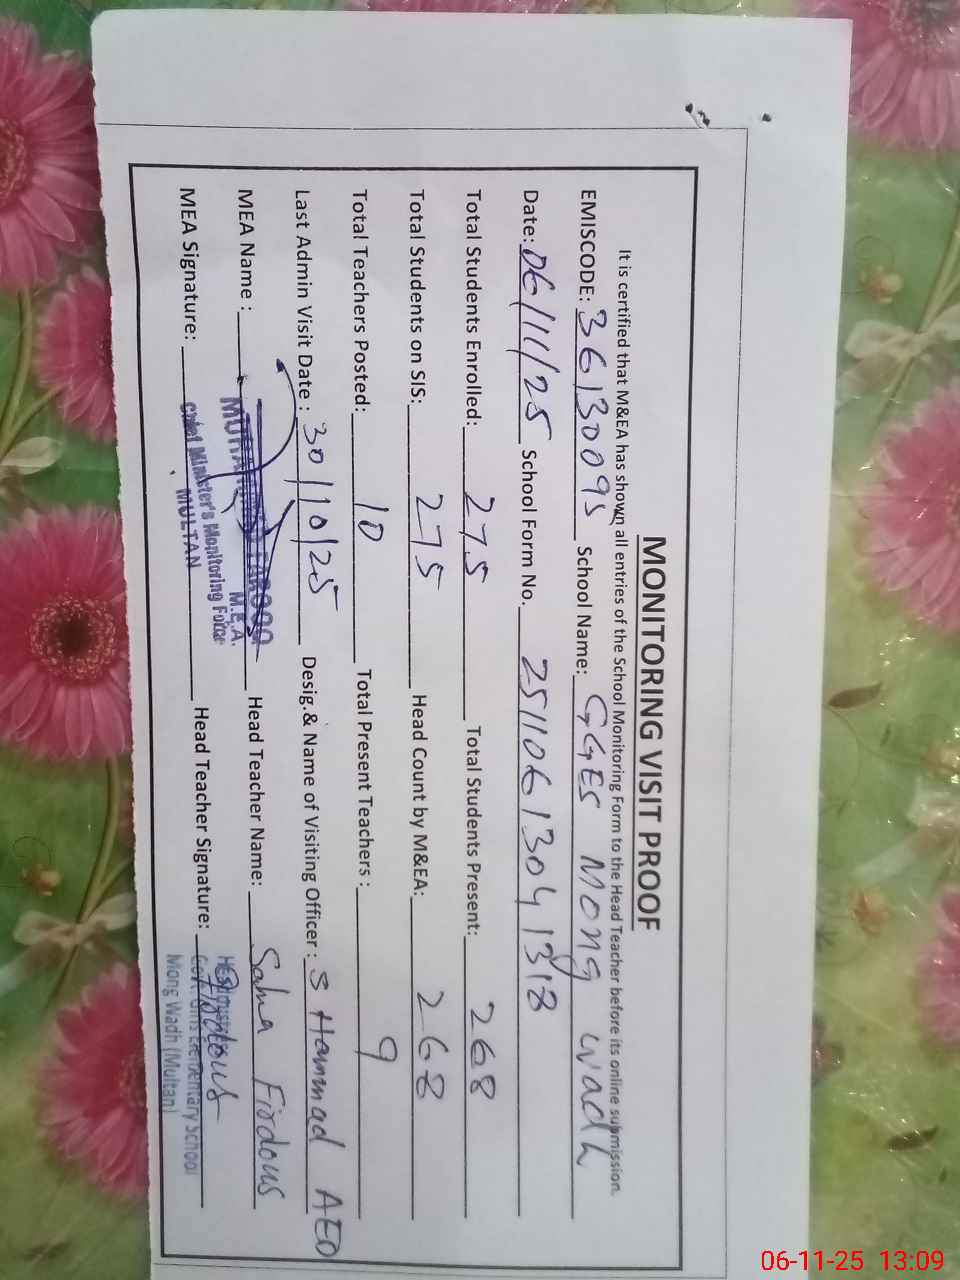 MONITORING VISIT PROOF
It is certified that M&EA has shown all entries of the School Monitoring Form to the Head Teacher before its online submission.
EMISCODE: 36130095 School Name: GGES Mong wadh
Date: 06/11/25 School Form No. 25110613041318
Total Students Enrolled: 275 Total Students Present: 268
Total Students on SIS: 275 Head Count by M&EA: 268
Total Teachers Posted: 10 Total Present Teachers : 9
Last Admin Visit Date : 30/10/25 Desig.& Name of Visiting Officer : S Hammad AEO
MEA Name : Head Teacher Name: Salma Firdous
M.E.A.
Chief Minister's Monitoring Force
MULTAN
MEA Signature: Head Teacher Signature: Firdous
Headmistress
Govt. Girls Elementary School
Mong Wadh (Multan)
06-11-25 13:09